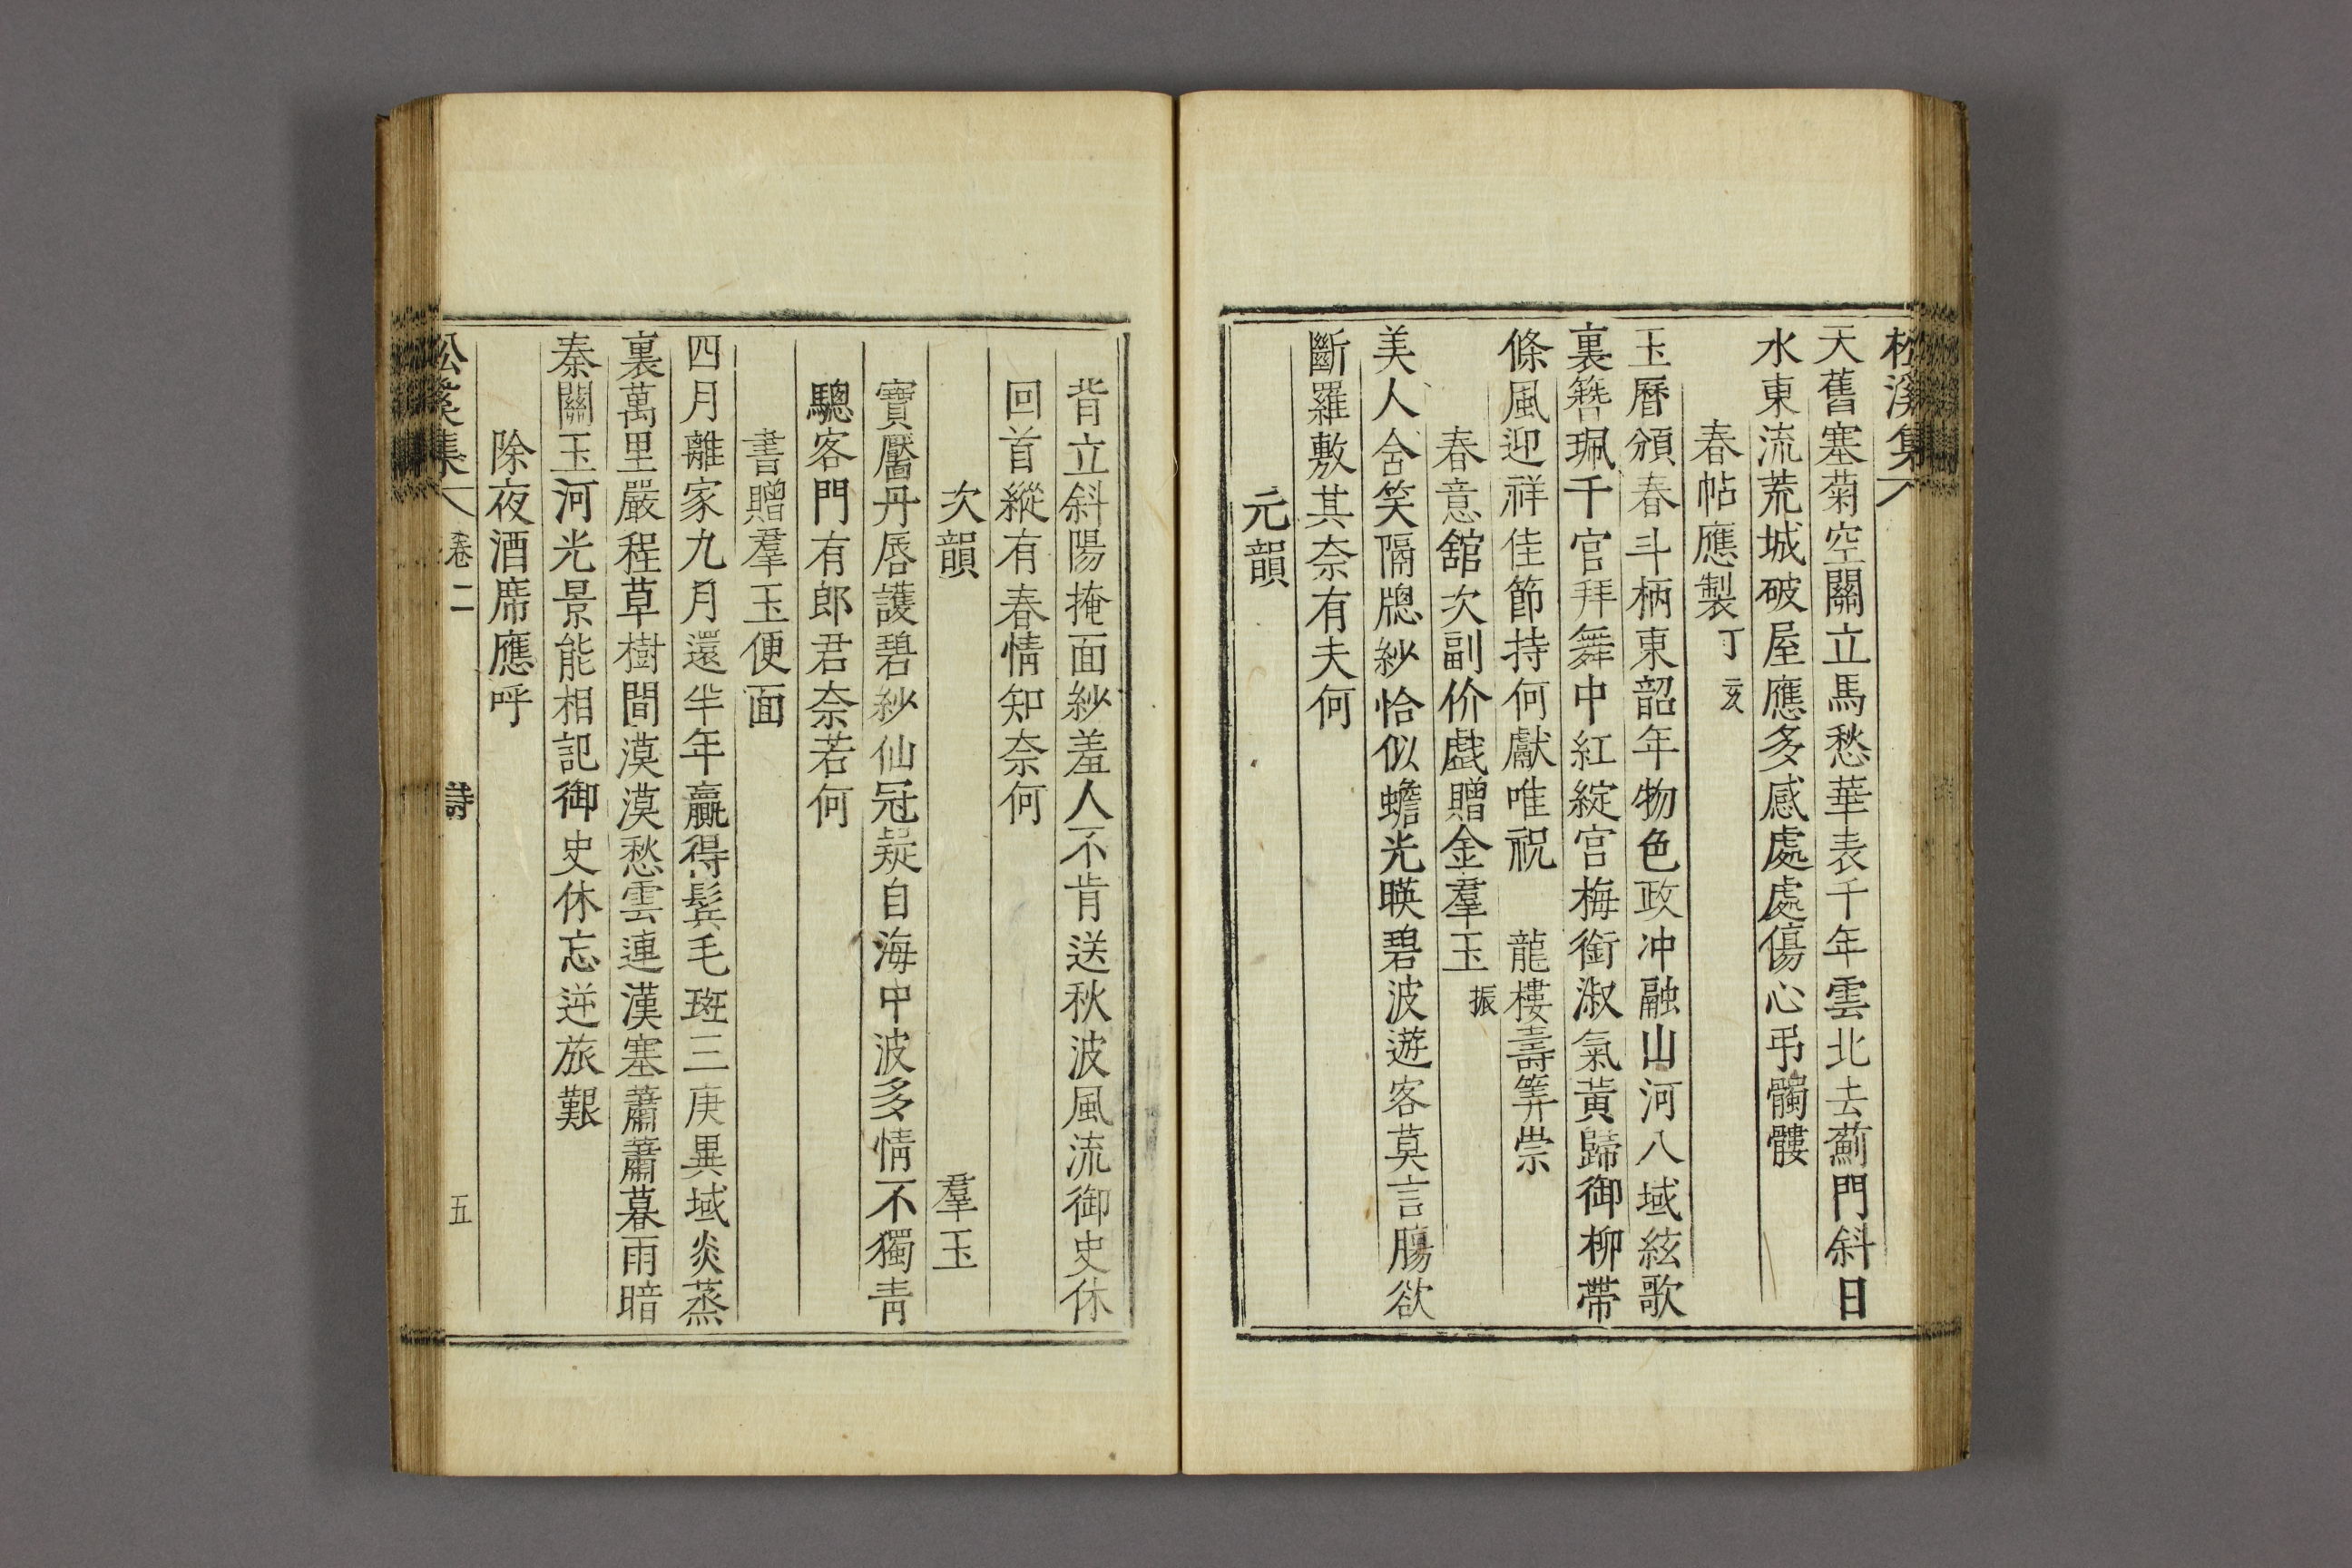 松溪集
天舊塞菊空關立馬愁華表千年雲北去薊門斜日
水東流荒城破屋應多感處處傷心弔髑髏
春帖應製丁亥
玉曆頒春斗柄東韶年物色政冲融山河八域絃歌
裏簪珮千官拜舞中紅綻宮梅銜淑氣黃歸御柳帶
條風迎祥佳節持何獻唯祝 龍樓壽筭崇
春意舘次副价戱贈金羣玉振
美人含笑隔牕紗恰似蟾光暎碧波遊客莫言膓欲
斷羅敷其奈有夫何
元韻
背立斜陽掩面紗羞人不肯送秋波風流御史休
回首縱有春情知奈何
次韻 羣玉
寶靨丹唇護碧紗仙冠疑自海中波多情不獨靑
驄客門有郎君奈若何
書贈羣玉便面
四月離家九月還半年贏得鬂毛斑三庚異域炎蒸
裏萬里嚴程草樹間漠漠愁雲連漢塞蕭蕭暮雨暗
秦關玉河光景能相記御史休忘逆旅艱
除夜酒席應呼
松溪集 卷二 詩 五